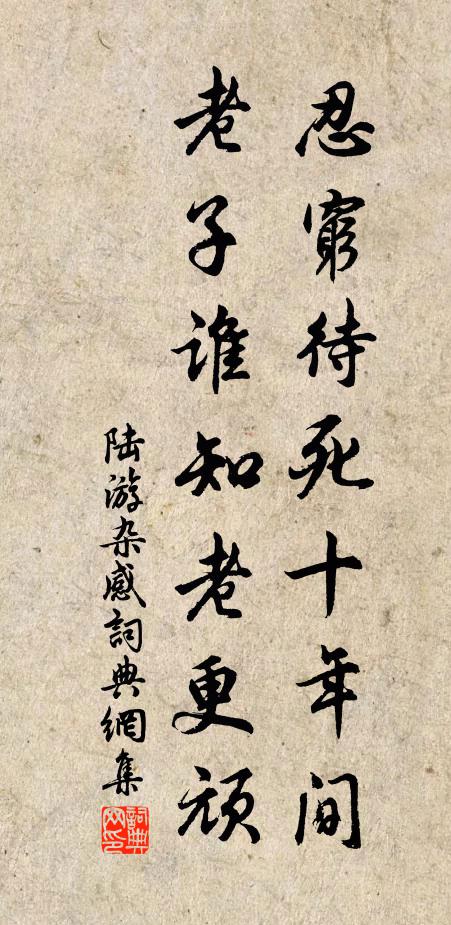 忍窮待死十年间
老子谁知老更顽
陆游杂感詞典網集
詞典网印